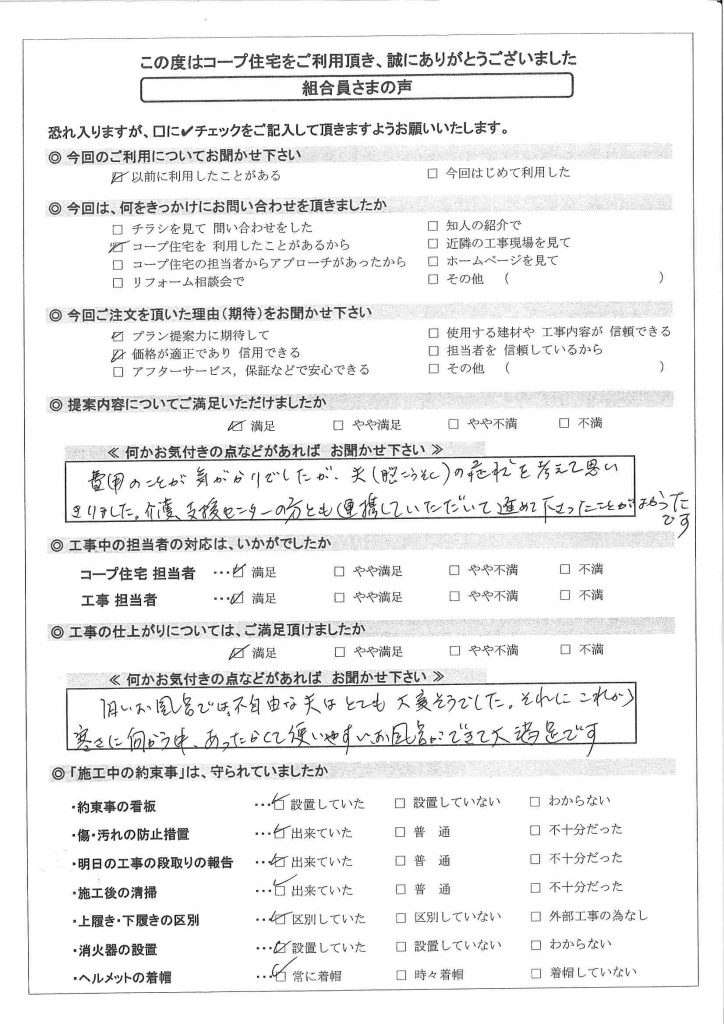 この度はコープ住宅をご利用頂き、誠にありがとうございました
組合員さまの声
恐れ入りますが、口に✔チェックをご記入して頂きますようお願いいたします。
◎ 今回のご利用についてお聞かせ下さい
☑ 以前に利用したことがある □ 今回はじめて利用した
◎ 今回は、何をきっかけにお問い合わせを頂きましたか
□ チラシを見て 問い合わせをした □ 知人の紹介で
☑ コープ住宅を 利用したことがあるから □ 近隣の工事現場を見て
□ コープ住宅の担当者からアプローチがあったから □ ホームページを見て
□ リフォーム相談会で □ その他 ( )
◎ 今回ご注文を頂いた理由(期待)をお聞かせ下さい
☑ プラン提案力に期待して □ 使用する建材や 工事内容が 信頼できる
☑ 価格が適正であり 信用できる □ 担当者を 信頼しているから
□ アフターサービス, 保証などで安心できる □ その他 ( )
◎ 提案内容についてご満足いただけましたか
☑ 満足 □ やや満足 □ やや不満 □ 不満
≪ 何かお気付きの点などがあれば お聞かせ下さい ≫
費用のことが気がかりでしたが、夫(脳こうそく)の症状を考えて思い
きりました。介護支援センターの方とも連携していただいて進めて下さったことがよかった
です
◎ 工事中の担当者の対応は、いかがでしたか
コープ住宅 担当者 …☑ 満足 □ やや満足 □ やや不満 □ 不満
工事 担当者 …☑ 満足 □ やや満足 □ やや不満 □ 不満
◎ 工事の仕上がりについては、ご満足頂けましたか
☑ 満足 □ やや満足 □ やや不満 □ 不満
≪ 何かお気付きの点などがあれば お聞かせ下さい ≫
旧いお風呂では、不自由な夫はとても大変そうでした。それにこれから
寒さに向かう中、あったかくて使いやすいお風呂ができて大満足です
◎ 「施工中の約束事」は、守られていましたか
・約束事の看板 …☑ 設置していた □ 設置していない □ わからない
・傷・汚れの防止措置 …☑ 出来ていた □ 普 通 □ 不十分だった
・明日の工事の段取りの報告 …☑ 出来ていた □ 普 通 □ 不十分だった
・施工後の清掃 …☑ 出来ていた □ 普 通 □ 不十分だった
・上履き・下履きの区別 …☑ 区別していた □ 区別していない □ 外部工事の為なし
・消火器の設置 …☑ 設置していた □ 設置していない □ わからない
・ヘルメットの着帽 …☑ 常に着帽 □ 時々着帽 □ 着帽していない